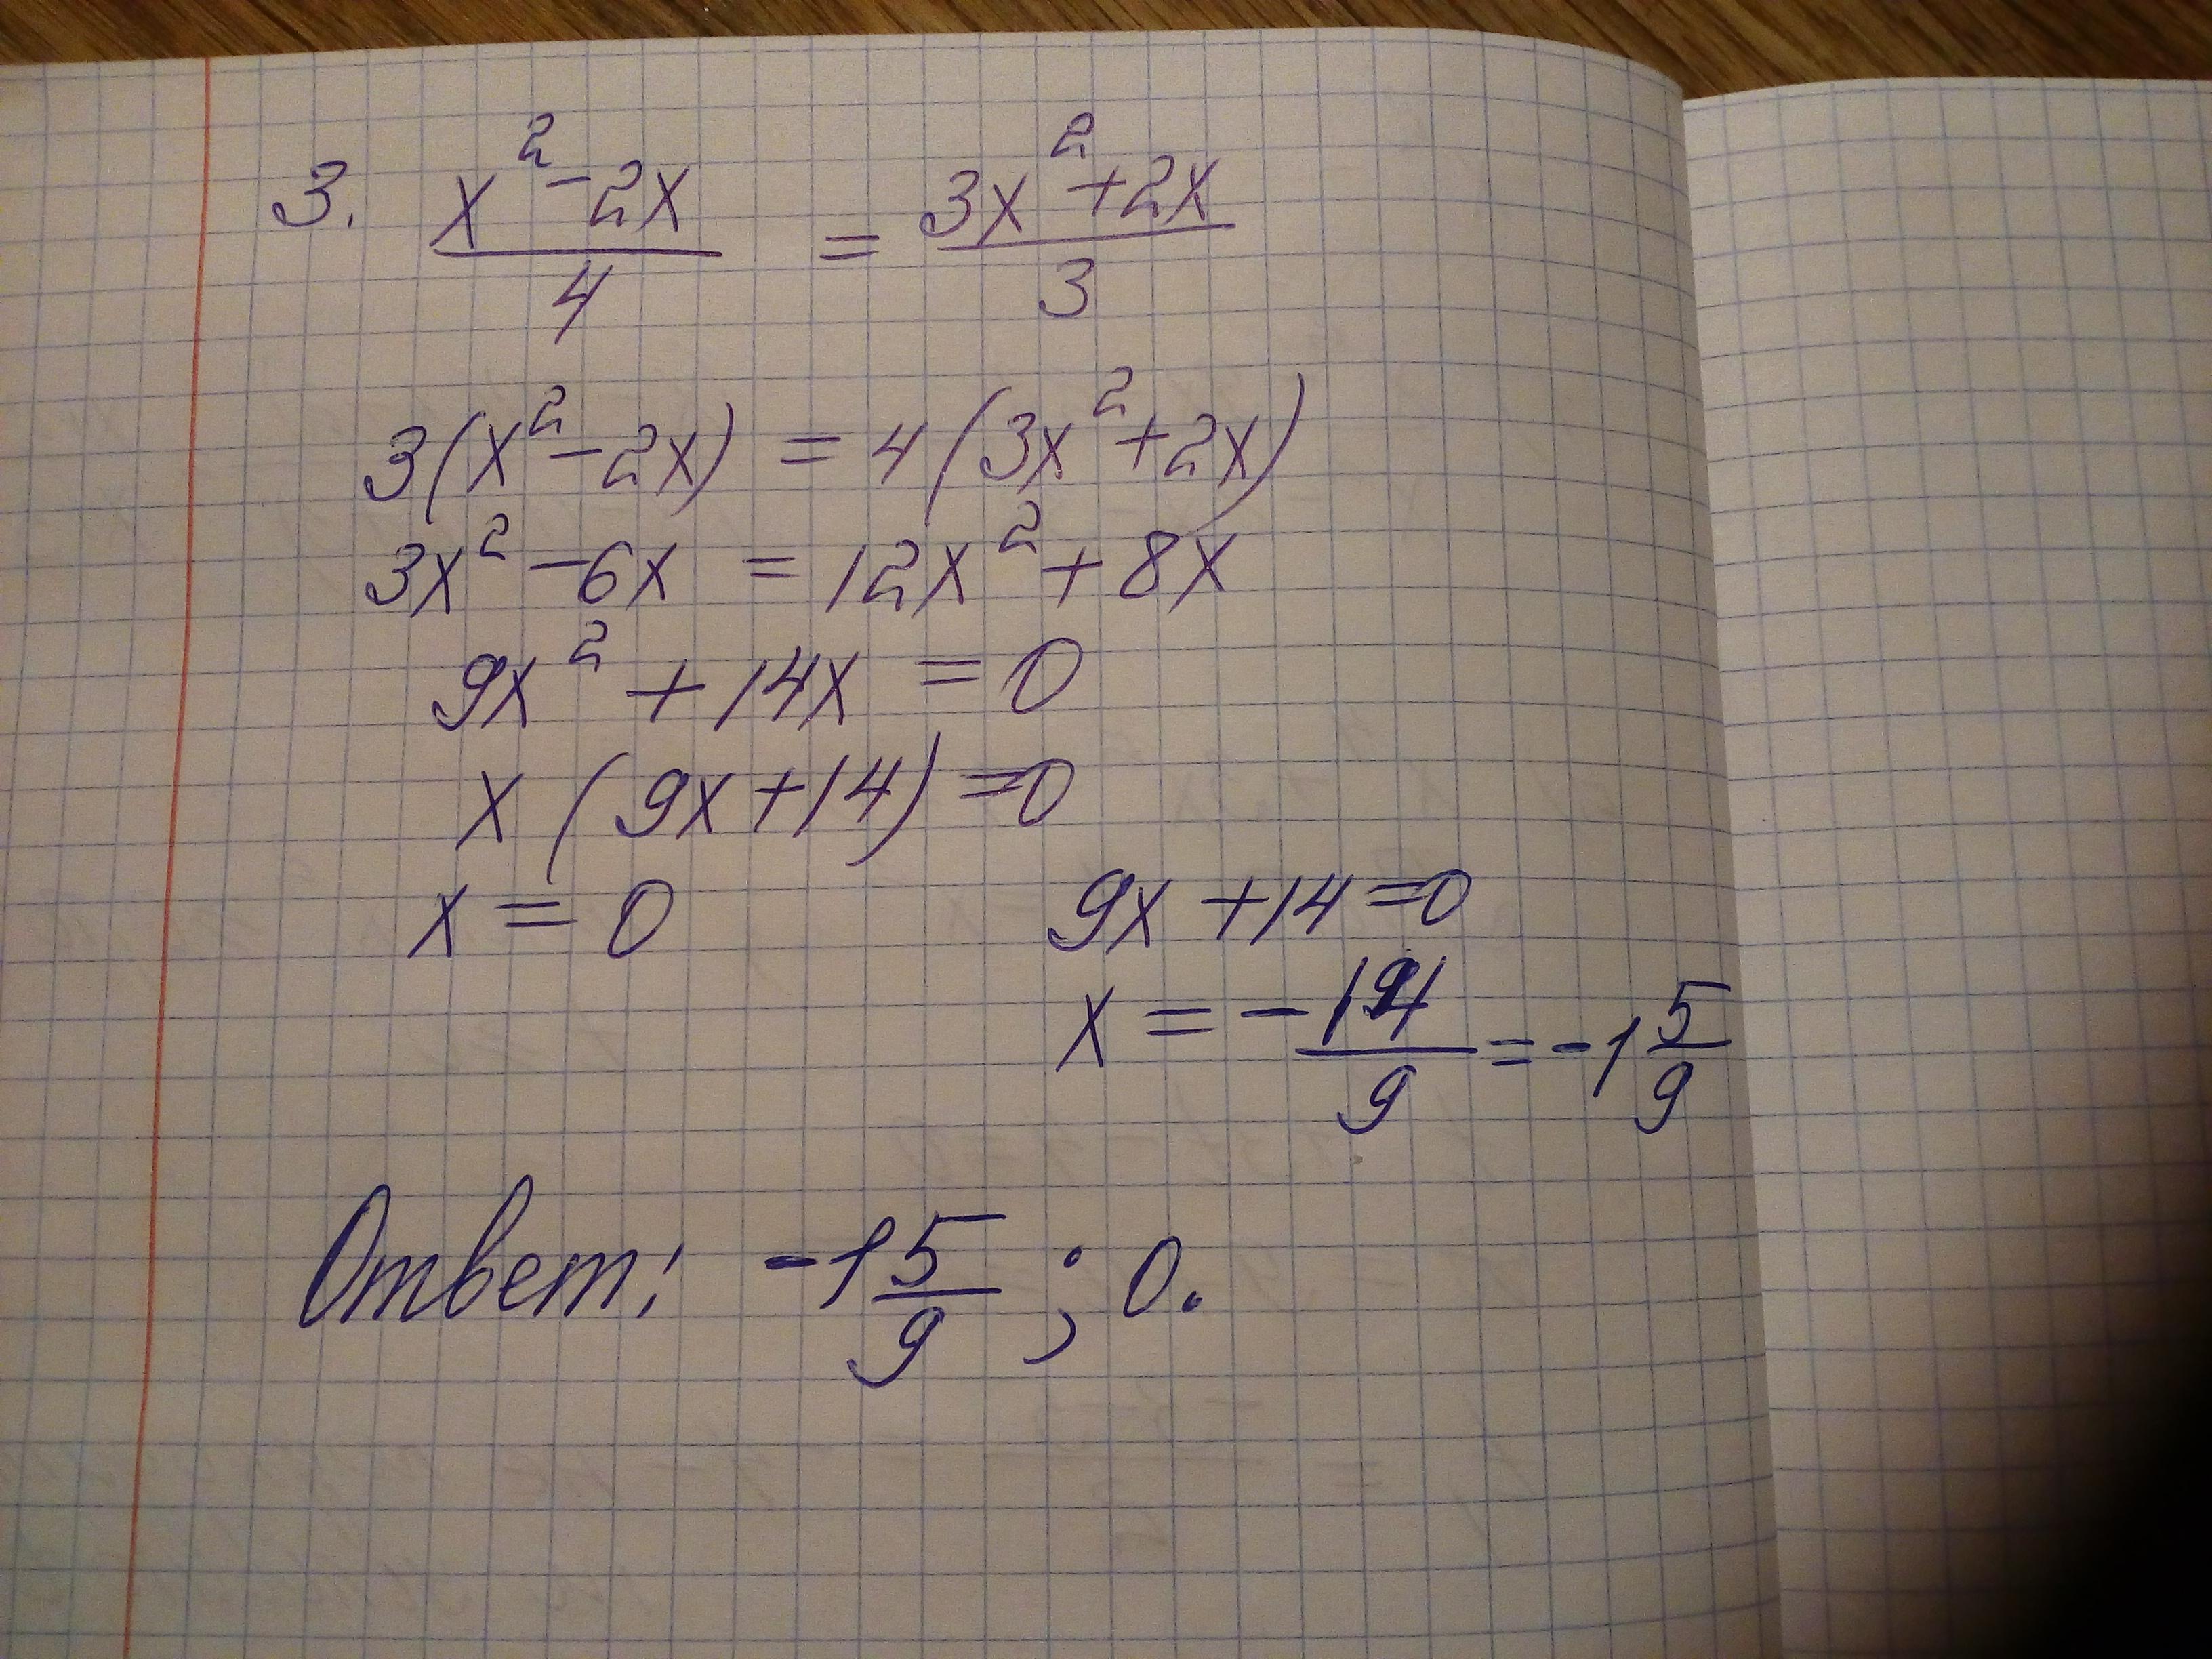 3. (x² - 2x)/4 = (3x² + 2x)/3
3(x² - 2x) = 4(3x² + 2x)
3x² - 6x = 12x² + 8x
9x² + 14x = 0
x(9x + 14) = 0
x = 0    9x + 14 = 0
x = -14/9 = -1 5/9
Ответ: -1 5/9 ; 0.